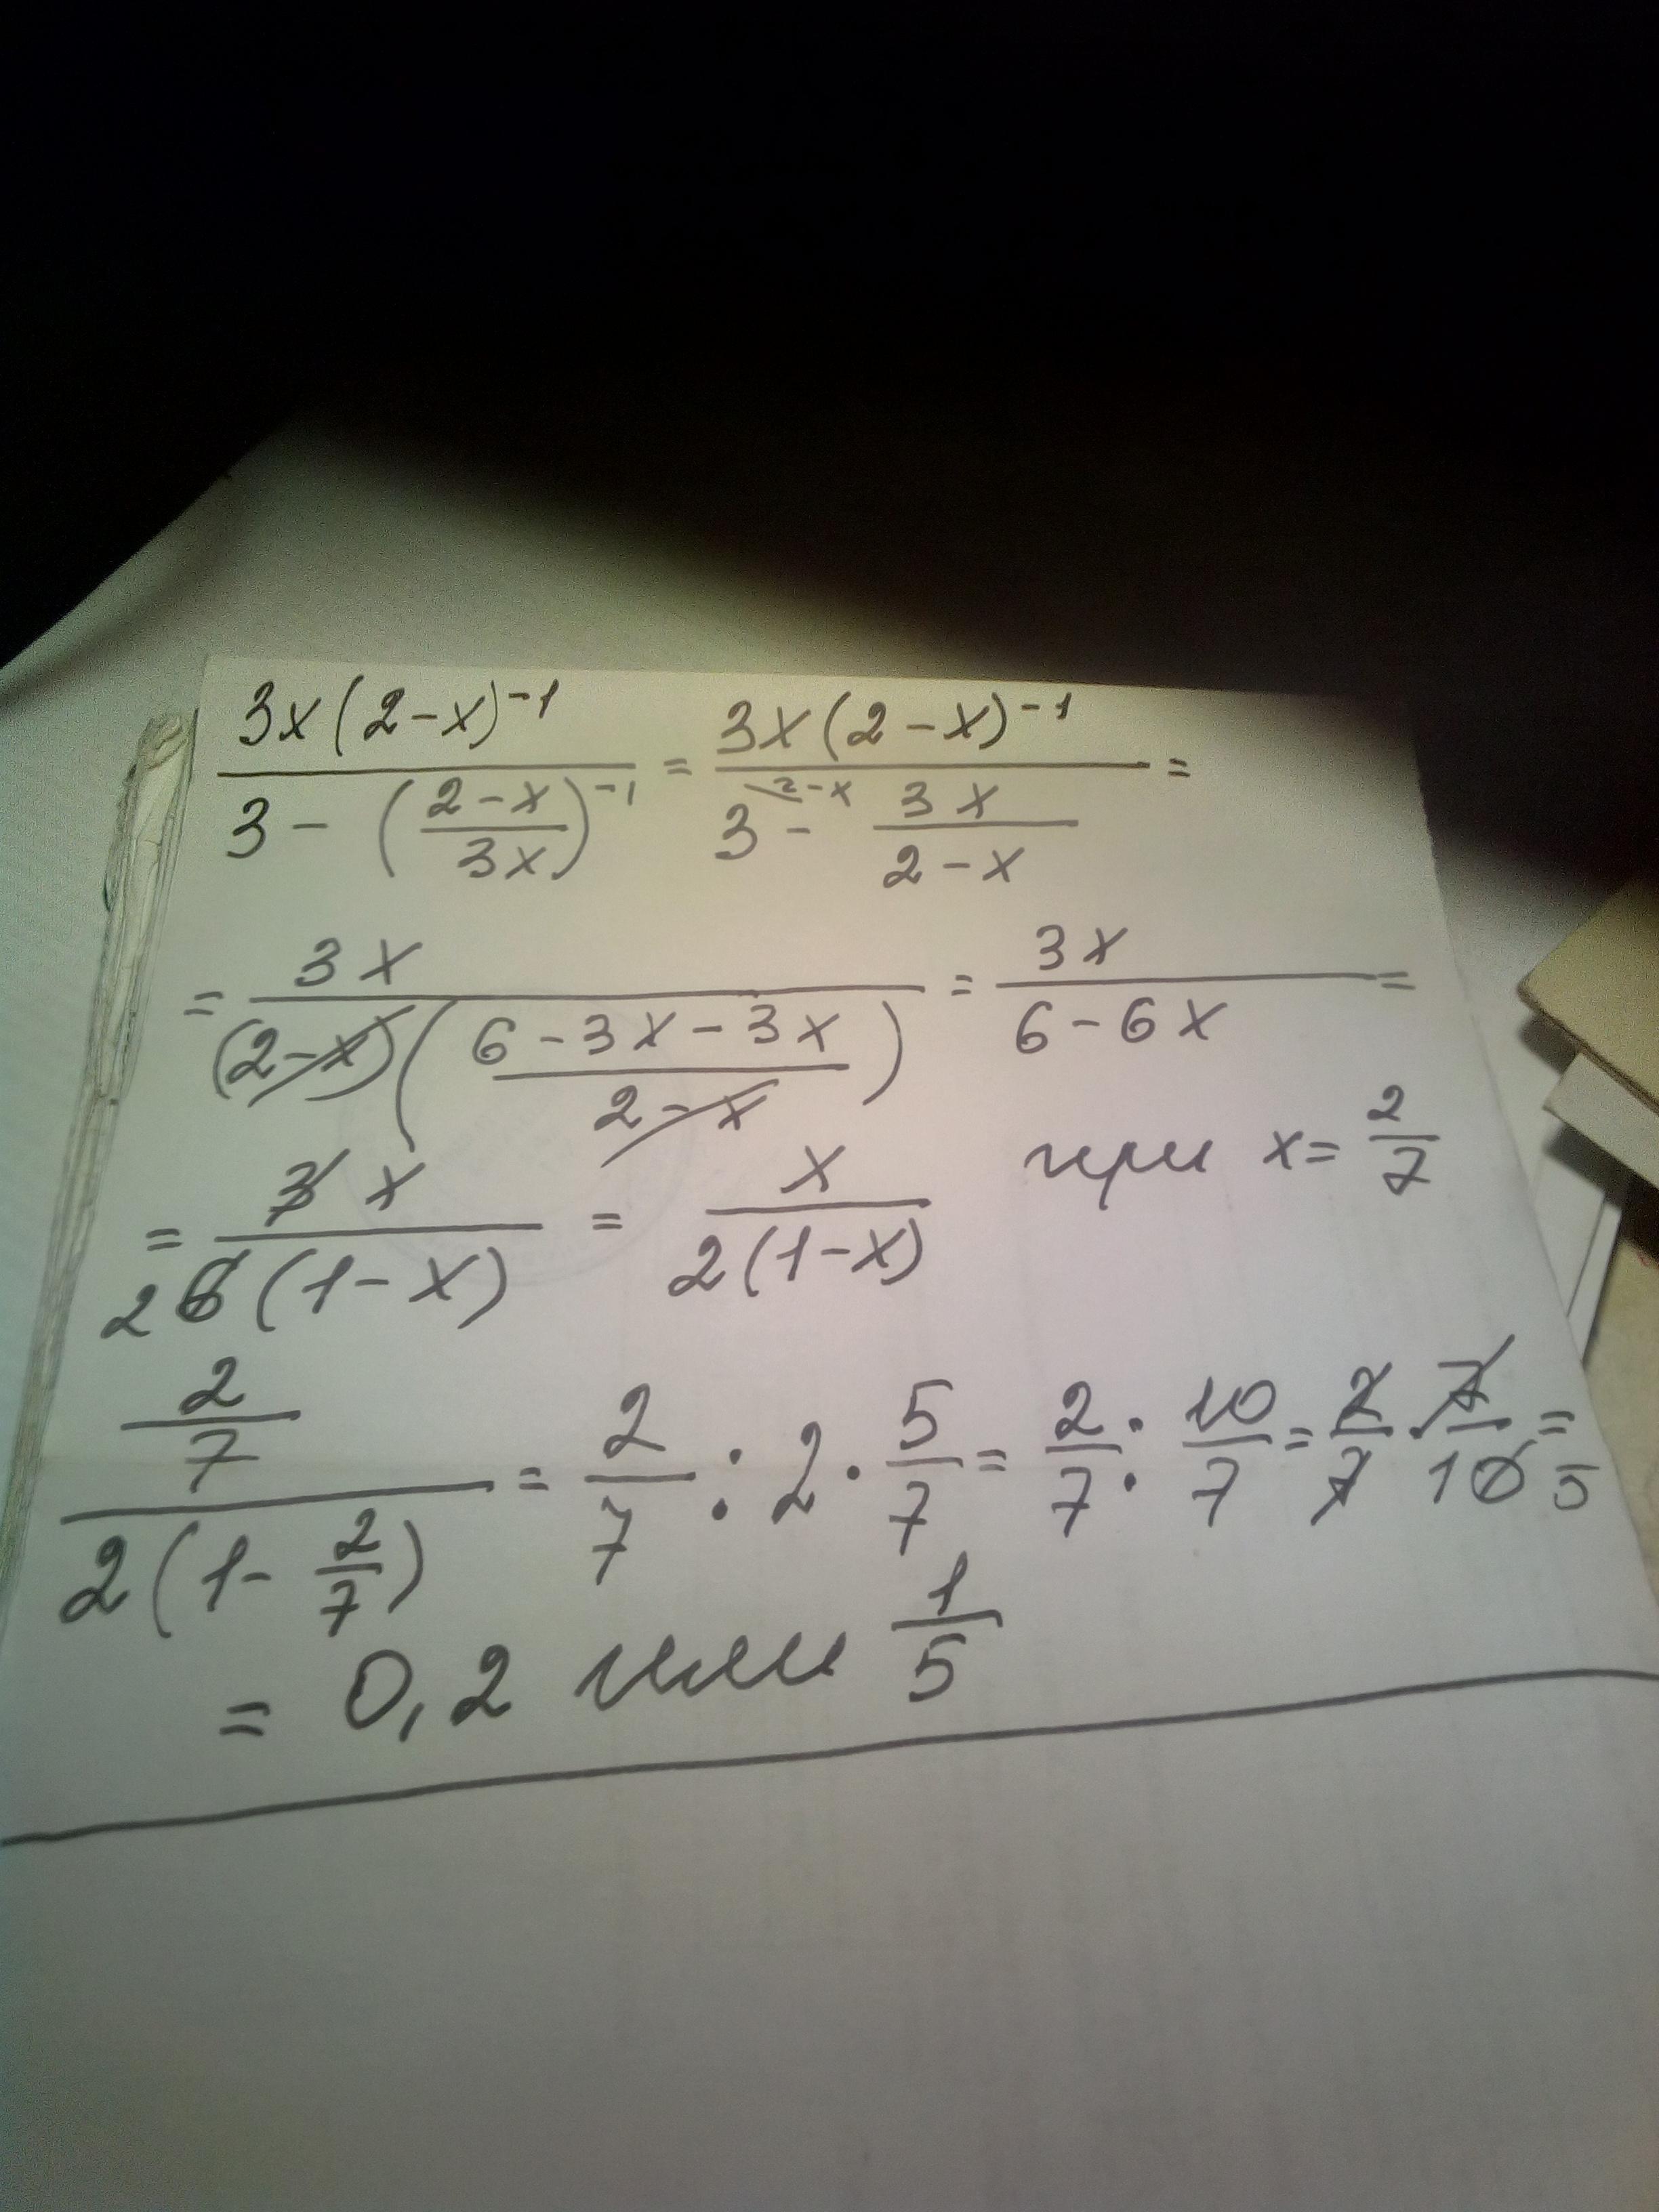 3x(2-x)⁻¹ / (3 - ((2-x)/(3x))⁻¹) = 3x(2-x)⁻¹ / (3 ²⁻ˣ - 3x/(2-x)) =
= 3x / ((2-x)((6-3x-3x)/(2-x))) = 3x / (6-6x) =
= 3x / (2 6(1-x)) = x / (2(1-x)) при x = 2/7
(2/7) / (2(1-2/7)) = 2/7 : 2 · 5/7 = 2/7 : 10/7 = 2/7 · 7/10 5 =
= 0,2 или 1/5